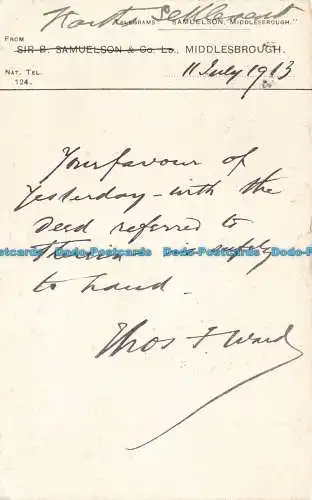 Settlement
TELEGRAMS "SAMUELSON, MIDDLESBROUGH."
FROM
SIR B. SAMUELSON & Co. Ld., MIDDLESBROUGH.
NAT. TEL.
124.
11 July 1913
Your favour of
yesterday - with the
Deed referred to
is safely
to hand.
Thos F. Ward
Dodo-Postcards Dodo-Postcards Dodo-Postcards